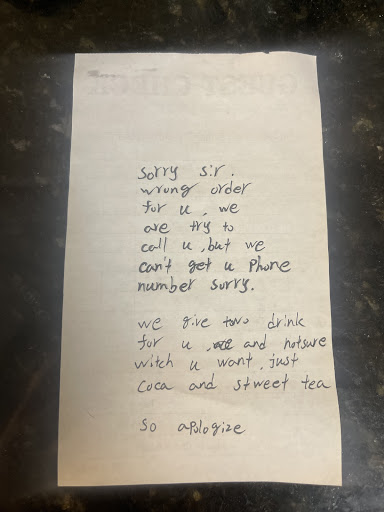 GUEST CHECK
sorry sir.
wrong order
for u, we
are try to
call u, but we
can't get u phone
number sorry.
we give two drink
for u, and hotsure
witch u want, just
coca and stweet tea
so apologize